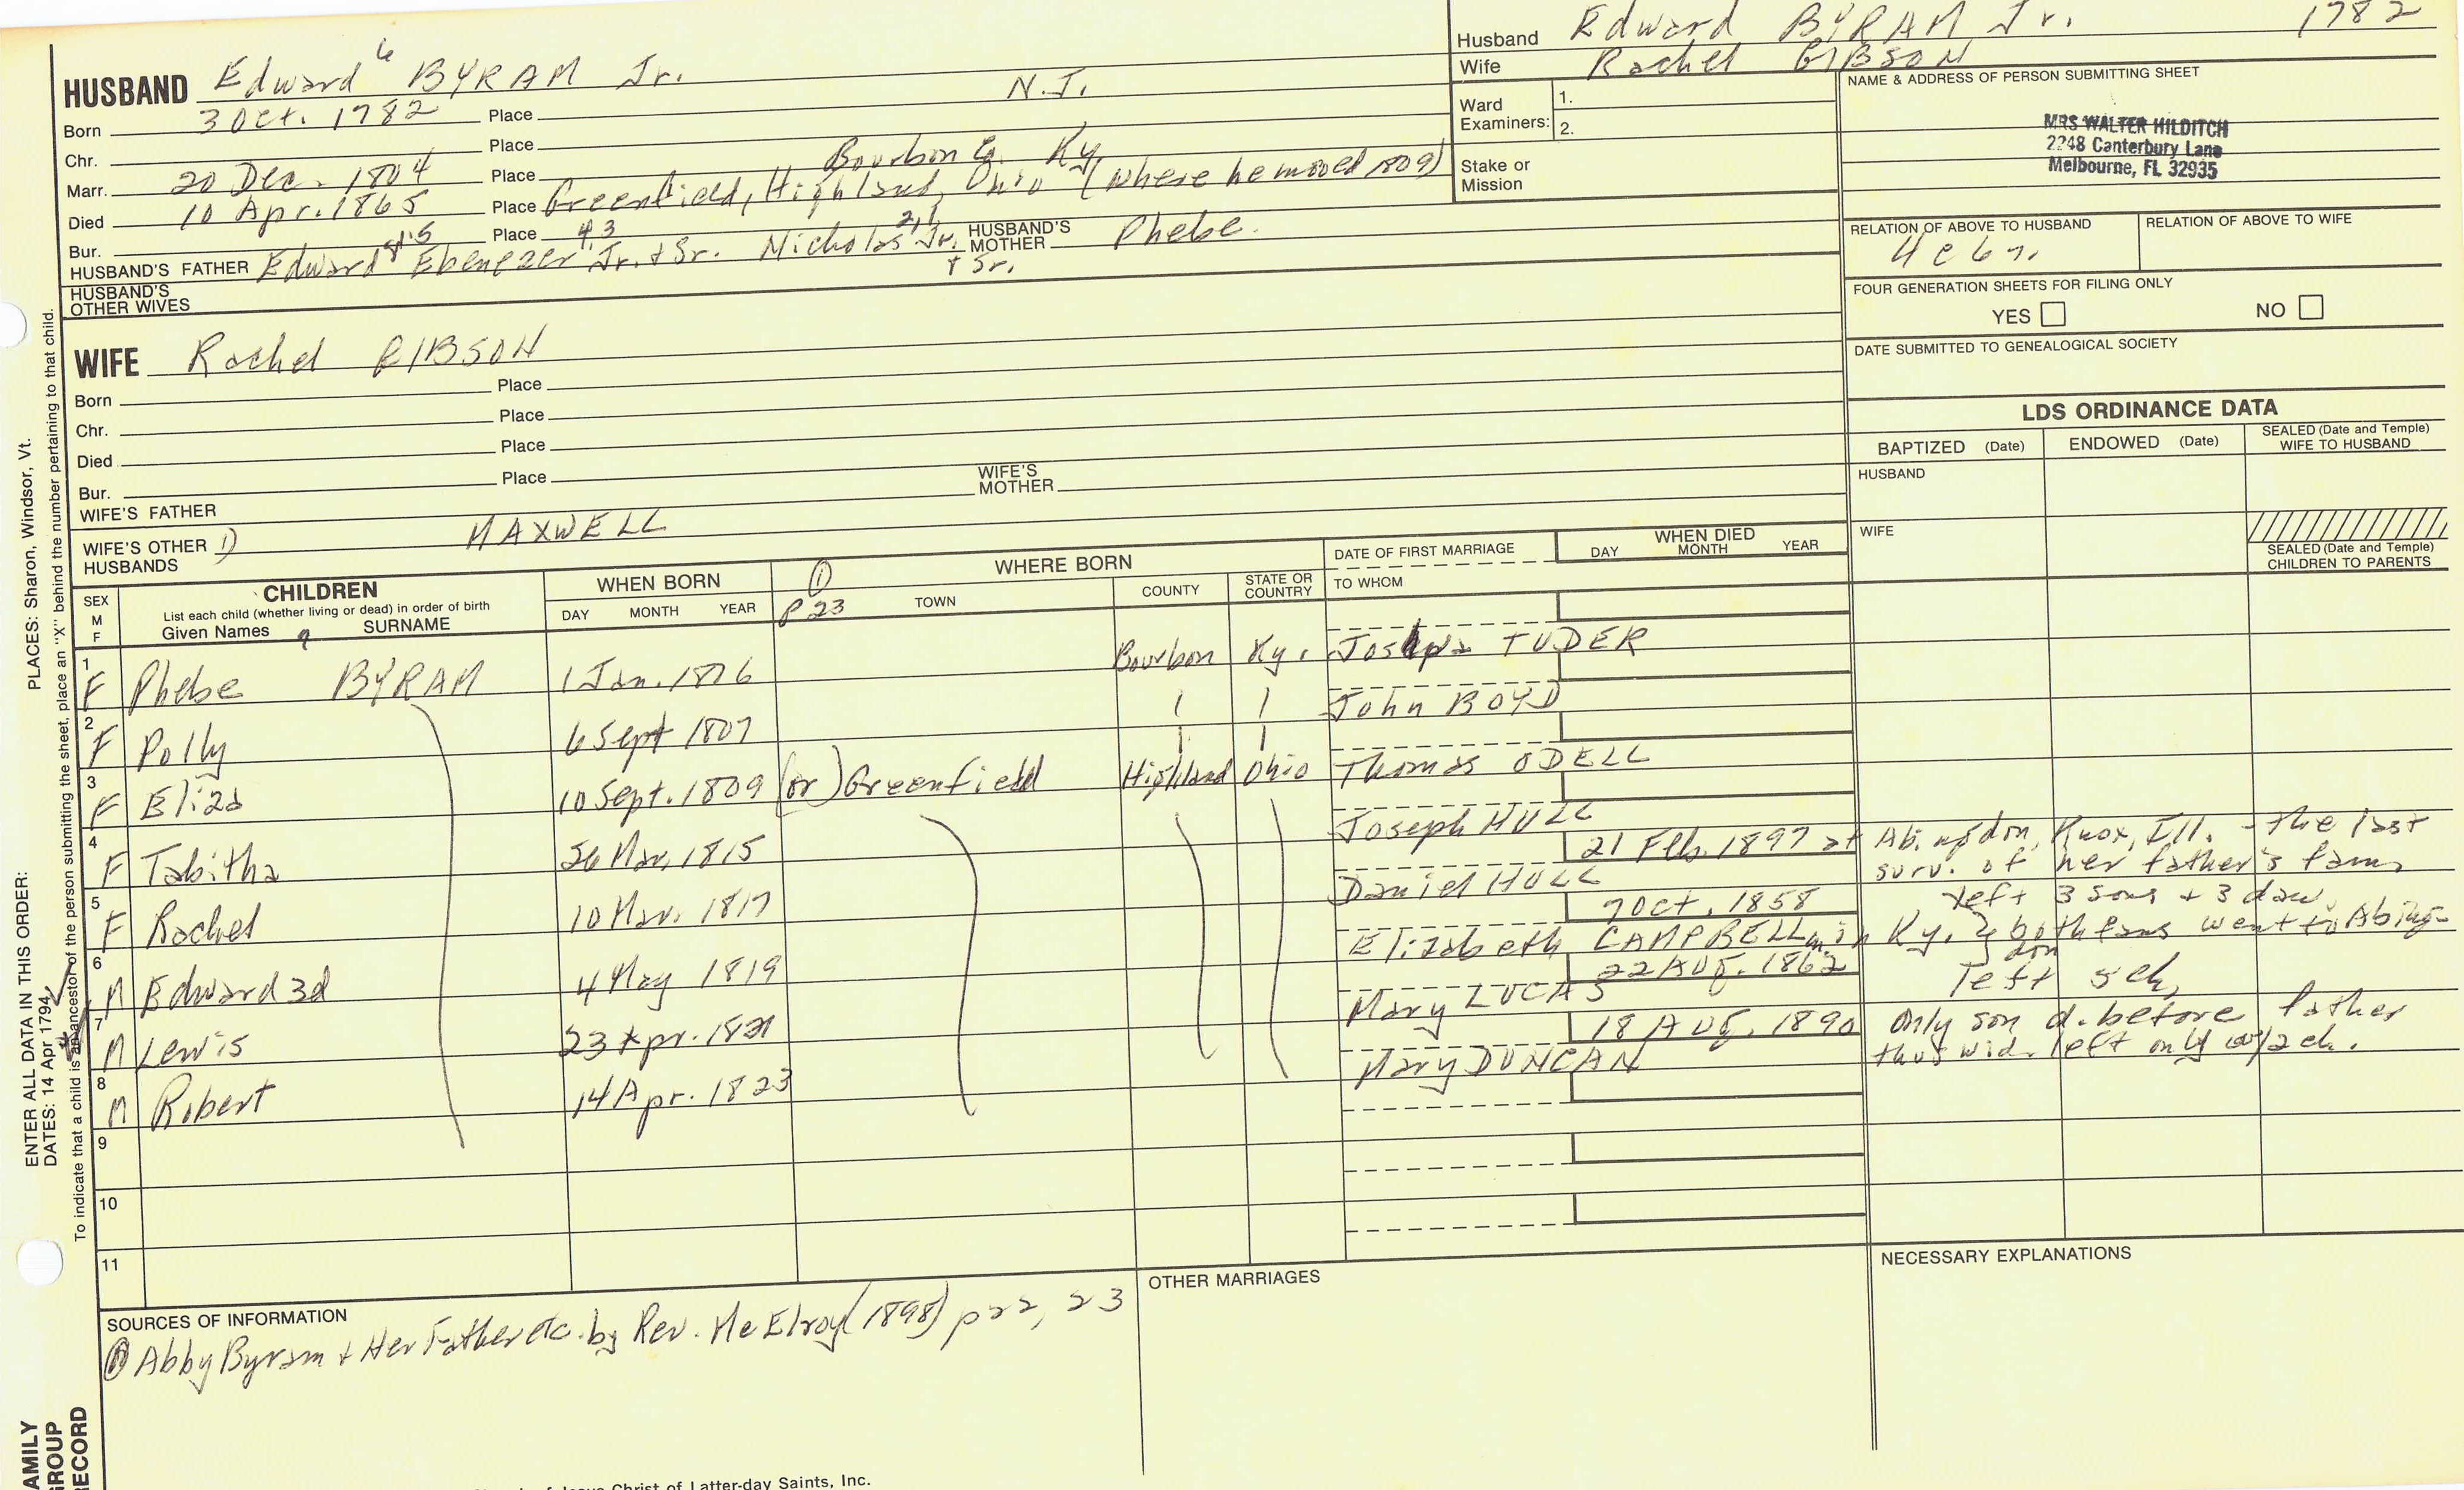 Husband Edward BYRAM Jr. 1782
Wife Rachel GIBSON
HUSBAND Edward 6 BYRAM Jr.
Born 3 Oct. 1782 Place N.J.
Chr. Place
Marr. 20 Dec. 1804 Place Bourbon Co. Ky.
Died 10 Apr. 1865 Place Greenfield, Highland, Ohio (where he moved 1809)
Bur. Place
HUSBAND'S FATHER Edward Sr. 5 Ebenezer 4,3 Jr. + Sr. Nicholas 2,1 Jr. + Sr. HUSBAND'S MOTHER Phebe.
HUSBAND'S OTHER WIVES
Ward Examiners: 1.
2.
Stake or Mission
NAME & ADDRESS OF PERSON SUBMITTING SHEET
MRS WALTER HILDITCH
2248 Canterbury Lane
Melbourne, FL 32935
RELATION OF ABOVE TO HUSBAND RELATION OF ABOVE TO WIFE
4 c 6 r.
FOUR GENERATION SHEETS FOR FILING ONLY
YES NO
DATE SUBMITTED TO GENEALOGICAL SOCIETY
WIFE Rachel GIBSON
Born Place
Chr. Place
Died Place
Bur. Place
WIFE'S FATHER WIFE'S MOTHER
WIFE'S OTHER HUSBANDS 1) MAXWELL
LDS ORDINANCE DATA
BAPTIZED (Date) ENDOWED (Date) SEALED (Date and Temple) WIFE TO HUSBAND
HUSBAND
WIFE
SEALED (Date and Temple) CHILDREN TO PARENTS
SEX M F
CHILDREN
List each child (whether living or dead) in order of birth
Given Names SURNAME
WHEN BORN
DAY MONTH YEAR
WHERE BORN
1 p 23 TOWN COUNTY STATE OR COUNTRY
DATE OF FIRST MARRIAGE
TO WHOM
WHEN DIED
DAY MONTH YEAR
1 F Phebe BYRAM 1 Jan. 1806 Bourbon Ky. TUDER
2 F Polly 6 Sept 1807 John BOYD
3 F Eliza 10 Sept. 1809 (or) Greenfield Highland Ohio Thomas ODELL
4 F Tabitha 26 Mar. 1815 Joseph HULL
5 F Rachel 10 Mar. 1817 21 Feb. 1897 at Abingdon, Knox, Ill. - the last surv. of her father's fam.
Daniel HULL
6 M Edward 3d 4 May 1819 7 Oct. 1858 left 3 sons + 3 dau.
Elizabeth CAMPBELL m in Ky. & both fams went to Abingdon
7 M Lewis 23 Apr. 1821 22 Aug. 1862 left 5 ch.
Mary LUCAS
8 M Robert 14 Apr. 1823 18 Aug. 1890 only son d. before father thus wid. left only w/2 ch.
Mary DUNCAN
9
10
11
SOURCES OF INFORMATION
1 Abby Byram + Her Father etc. by Rev. McElroy (1898) p 22, 23
OTHER MARRIAGES
NECESSARY EXPLANATIONS
ENTER ALL DATA IN THIS ORDER:
DATES: 14 Apr 1794
PLACES: Sharon, Windsor, Vt.
To indicate that a child is an ancestor of the person submitting the sheet, place an "X" behind the number pertaining to that child.
AMILY
GROUP
RECORD
Jesus Christ of Latter-day Saints, Inc.